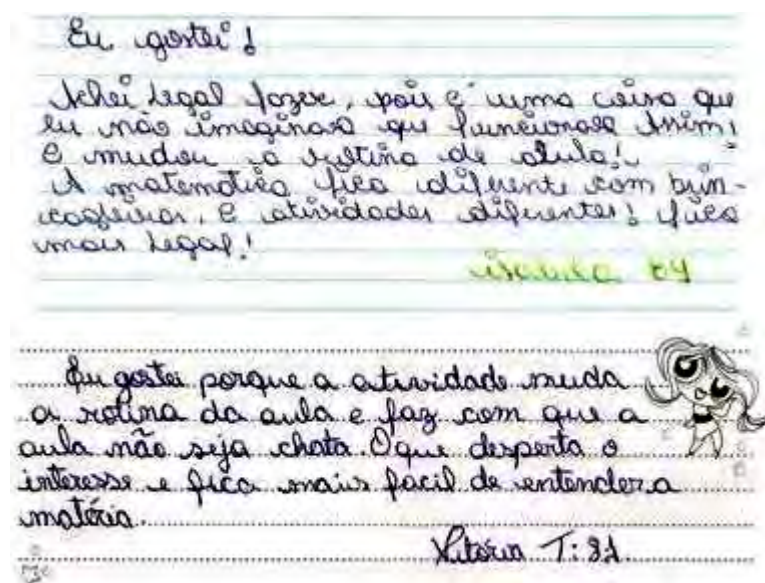 Eu gostei!
Achei legal fazer, pois é uma coisa que
eu não imaginava que funcionasse assim!
E mudou a rotina de aula!
A matemática fica diferente com brin-
cadeiras, e atividades diferentes! fica
mais legal!
Eu gostei porque a atividade muda
a rotina da aula e faz com que a
aula não seja chata. O que desperta o
interesse e fica mais fácil de entender a
matéria.
Vitória T: 81